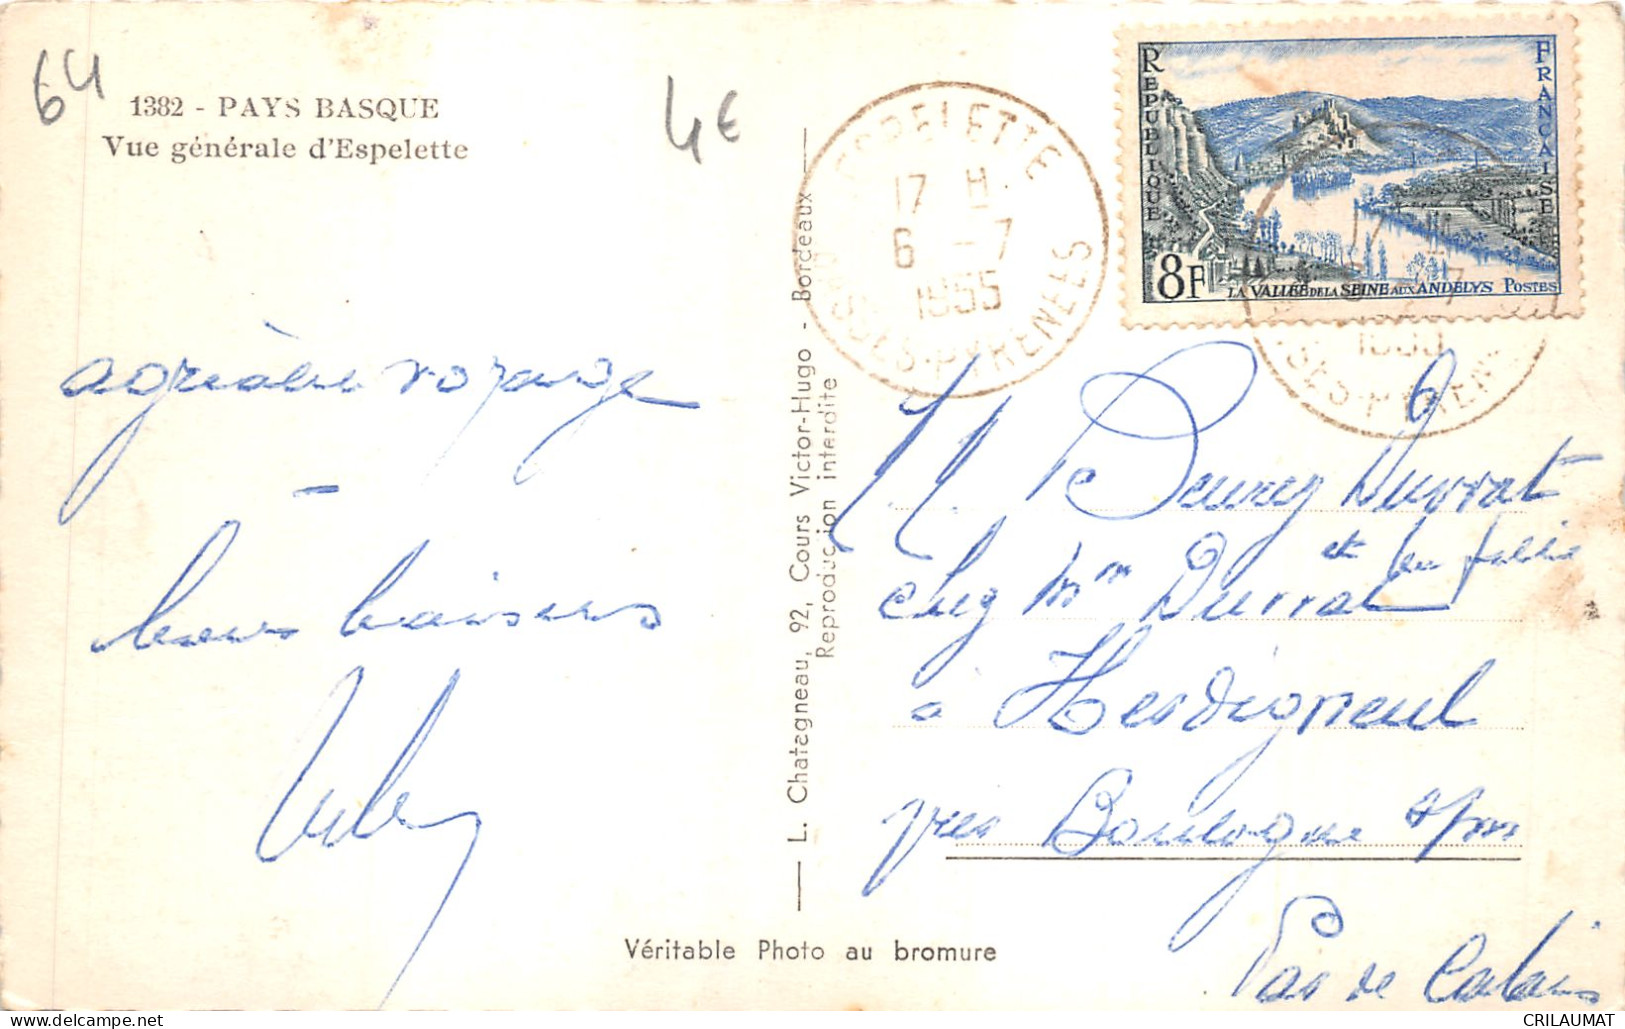 64
1382 - PAYS BASQUE
Vue générale d'Espelette
4€
agréable voyage
-
bons baisers
L. Chatagneau, 92, Cours Victor-Hugo - Bordeaux
Reproduction interdite
Véritable Photo au bromure
ESPELETTE
17 H
6 - 7
1955
BASSES-PYRENEES
REPUBLIQUE FRANCAISE
8F
LA VALLÉE DE LA SEINE AUX ANDELYS POSTES
17
7
1955
SSES-PYRENE
Durrat
et
chez Mme Durrat
à Hesdigneul
près Boulogne s/m
Pas de Calais
CRILAUMAT